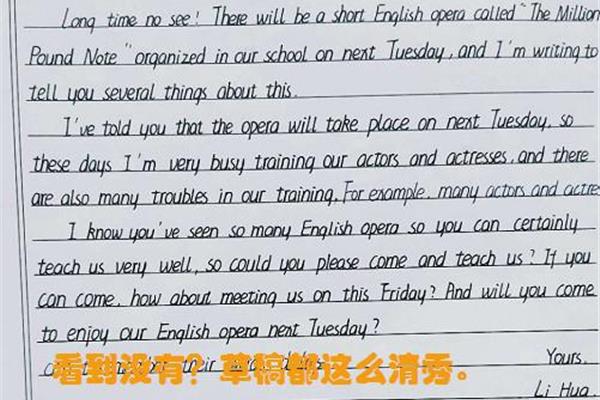 Long time no see! There will be a short English opera called "The Million
Pound Note" organized in our school on next Tuesday, and I'm writing to
tell you several things about this.
I've told you that the opera will take place on next Tuesday, so
these days I'm very busy training our actors and actresses, and there
are also many troubles in our training. For example, many actors and actre
I know you've seen so many English opera so you can certainly
teach us very well, so could you please come and teach us? If you
can come, how about meeting us on this Friday? And will you come
to enjoy our English opera next Tuesday?
看到没有？草稿都这么清秀。
their
Yours,
Li Hua.